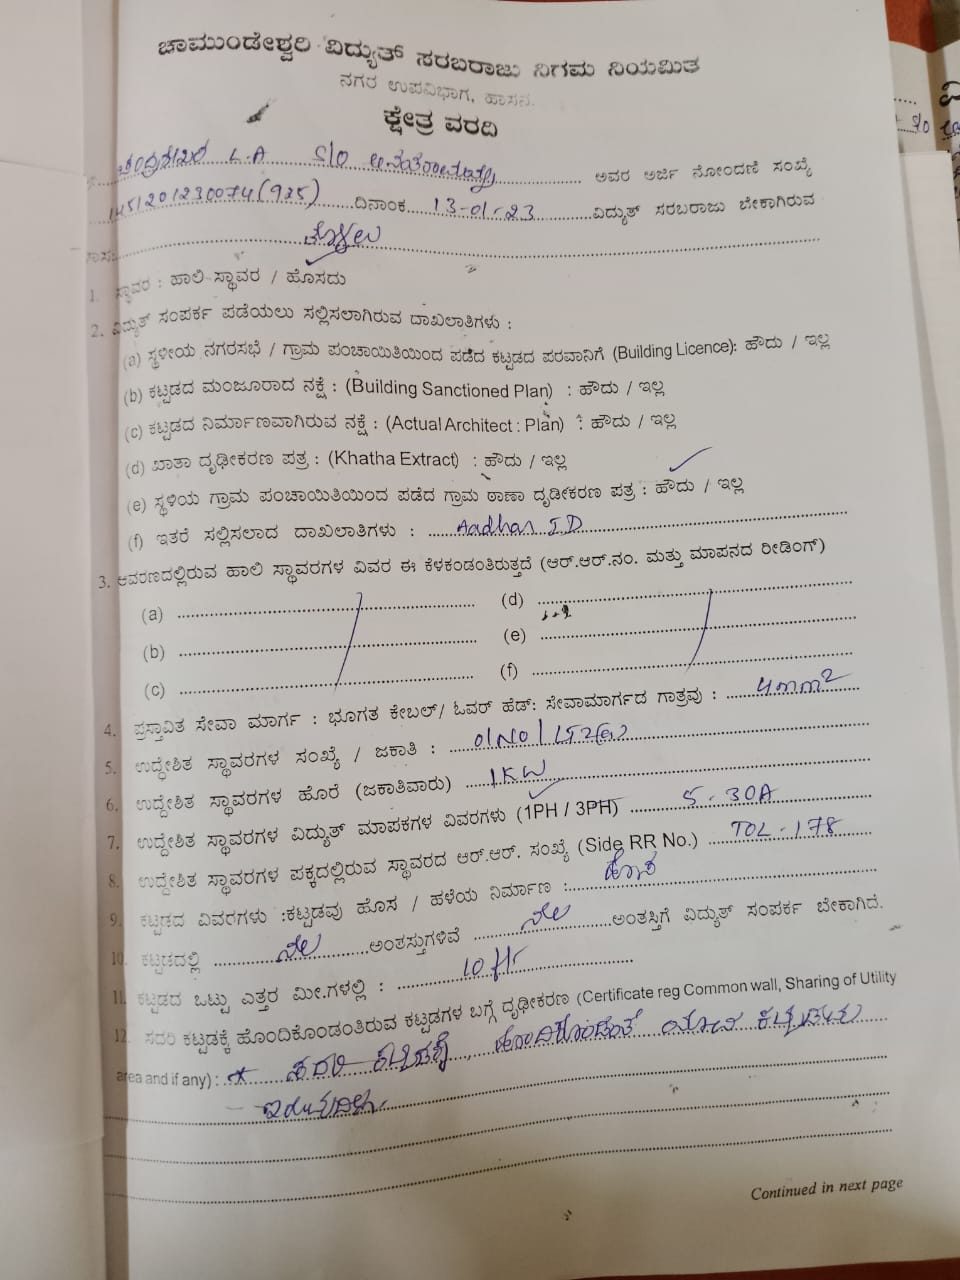 ಚಾಮುಂಡೇಶ್ವರಿ ವಿದ್ಯುತ್ ಸರಬರಾಜು ನಿಗಮ ನಿಯಮಿತ
ನಗರ ಉಪವಿಭಾಗ, ಹಾಸನ.
ಕ್ಷೇತ್ರ ವರದಿ
L.A S/O ಅವರ ಅರ್ಜಿ ನೋಂದಣಿ ಸಂಖ್ಯೆ
1451201230074(925) ದಿನಾಂಕ 13-01-23 ವಿದ್ಯುತ್ ಸರಬರಾಜು ಬೇಕಾಗಿರುವ
1. ಸ್ಥಾವರ : ಹಾಲಿ ಸ್ಥಾವರ / ಹೊಸದು
2. ವಿದ್ಯುತ್ ಸಂಪರ್ಕ ಪಡೆಯಲು ಸಲ್ಲಿಸಲಾಗಿರುವ ದಾಖಲಾತಿಗಳು :
(a) ಸ್ಥಳೀಯ ನಗರಸಭೆ / ಗ್ರಾಮ ಪಂಚಾಯಿತಿಯಿಂದ ಪಡೆದ ಕಟ್ಟಡದ ಪರವಾನಿಗೆ (Building Licence): ಹೌದು / ಇಲ್ಲ
(b) ಕಟ್ಟಡದ ಮಂಜೂರಾದ ನಕ್ಷೆ : (Building Sanctioned Plan) : ಹೌದು / ಇಲ್ಲ
(c) ಕಟ್ಟಡದ ನಿರ್ಮಾಣವಾಗಿರುವ ನಕ್ಷೆ : (Actual Architect : Plan) : ಹೌದು / ಇಲ್ಲ
(d) ಖಾತಾ ದೃಢೀಕರಣ ಪತ್ರ : (Khatha Extract) : ಹೌದು / ಇಲ್ಲ
(e) ಸ್ಥಳಿಯ ಗ್ರಾಮ ಪಂಚಾಯಿತಿಯಿಂದ ಪಡೆದ ಗ್ರಾಮ ಠಾಣಾ ದೃಡೀಕರಣ ಪತ್ರ : ಹೌದು / ಇಲ್ಲ
(f) ಇತರೆ ಸಲ್ಲಿಸಲಾದ ದಾಖಲಾತಿಗಳು : Aadhar I.D
3. ಆವರಣದಲ್ಲಿರುವ ಹಾಲಿ ಸ್ಥಾವರಗಳ ವಿವರ ಈ ಕೆಳಕಂಡಂತಿರುತ್ತದೆ (ಆರ್.ಆರ್.ನಂ. ಮತ್ತು ಮಾಪನದ ರೀಡಿಂಗ್)
(a) (d)
(b) (e)
(c) (f)
4. ಪ್ರಸ್ತಾವಿತ ಸೇವಾ ಮಾರ್ಗ : ಭೂಗತ ಕೇಬಲ್/ ಓವರ್ ಹೆಡ್: ಸೇವಾಮಾರ್ಗದ ಗಾತ್ರವು : 4mm2
5. ಉದ್ಧೇಶಿತ ಸ್ಥಾವರಗಳ ಸಂಖ್ಯೆ / ಜಕಾತಿ : 01No
6. ಉದ್ದೇಶಿತ ಸ್ಥಾವರಗಳ ಹೊರೆ (ಜಕಾತಿವಾರು) 1KW
7. ಉದ್ದೇಶಿತ ಸ್ಥಾವರಗಳ ವಿದ್ಯುತ್ ಮಾಪಕಗಳ ವಿವರಗಳು (1PH / 3PH) 5-30A
8. ಉದ್ದೇಶಿತ ಸ್ಥಾವರಗಳ ಪಕ್ಕದಲ್ಲಿರುವ ಸ್ಥಾವರದ ಆರ್.ಆರ್. ಸಂಖ್ಯೆ (Side RR No.) TOL-178
9. ಕಟ್ಟಡದ ವಿವರಗಳು :ಕಟ್ಟಡವು ಹೊಸ / ಹಳೆಯ ನಿರ್ಮಾಣ : ಹೊಸ
10. ಕಟ್ಟಡದಲ್ಲಿ ನೆಲ ಅಂತಸ್ತುಗಳಿವೆ ನೆಲ ಅಂತಸ್ತಿಗೆ ವಿದ್ಯುತ್ ಸಂಪರ್ಕ ಬೇಕಾಗಿದೆ.
11. ಕಟ್ಟಡದ ಒಟ್ಟು ಎತ್ತರ ಮೀ.ಗಳಲ್ಲಿ : 10 ft
12. ಸದರಿ ಕಟ್ಟಡಕ್ಕೆ ಹೊಂದಿಕೊಂಡಂತಿರುವ ಕಟ್ಟಡಗಳ ಬಗ್ಗೆ ದೃಢೀಕರಣ (Certificate reg Common wall, Sharing of Utility
area and if any) : ಸದರಿ ಕಟ್ಟಡಕ್ಕೆ, ಹೊಂದಿಕೊಂಡಂತೆ ಯಾವ ಕಟ್ಟಡಗಳು
ಇರುವುದಿಲ್ಲ.
Continued in next page